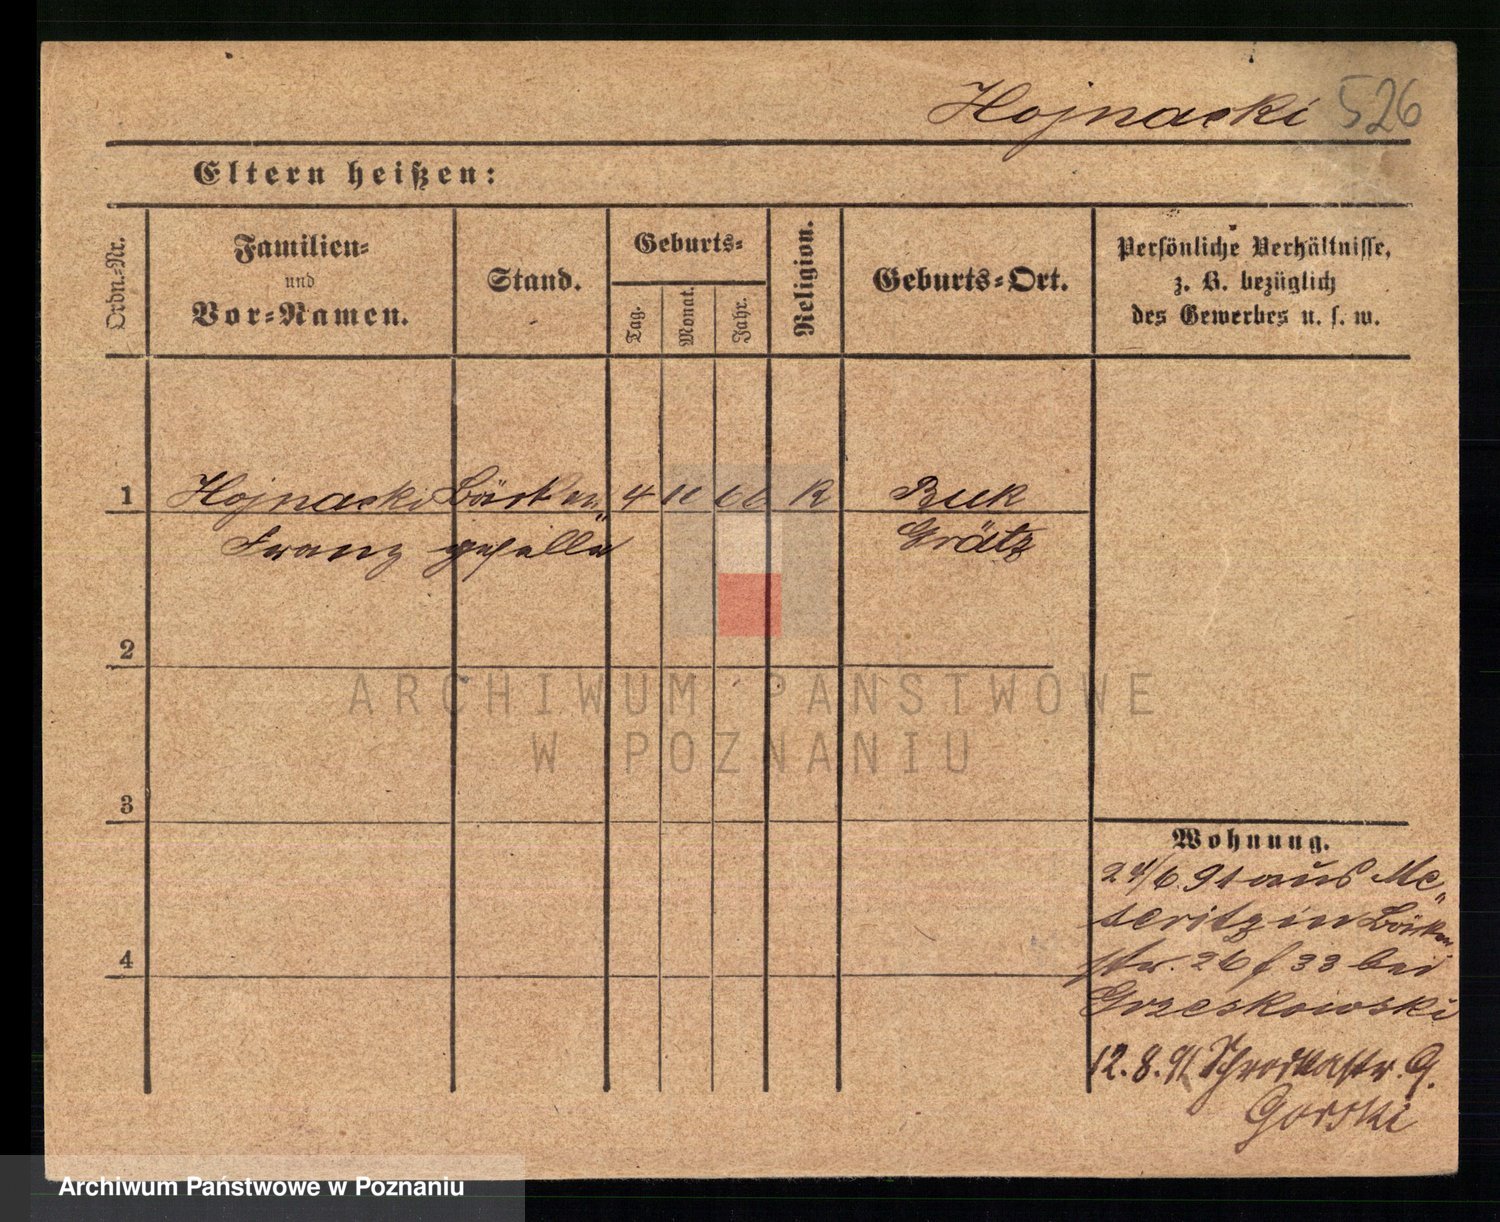 Hojnacki 526
Eltern heißen:
Ordn.=Nr.
Familien=
und
Vor=Namen.
Stand.
Geburts=
Tag.
Monat.
Jahr.
Religion.
Geburts=Ort.
Persönliche Verhältnisse,
z. B. bezüglich
des Gewerbes u. s. w.
1 Hojnacki Bäcker 4 66 K Buk
Franz geselle Grätz
2
3
4
Wohnung.
24/6. 91 aus Me„
seritz in Bäcker
str. 26 f 33 bei
Grzeskowski
12. 8. 91 Schrodkastr. 9.
Gorski
ARCHIWUM PAŃSTWOWE
W POZNANIU
Archiwum Państwowe w Poznaniu